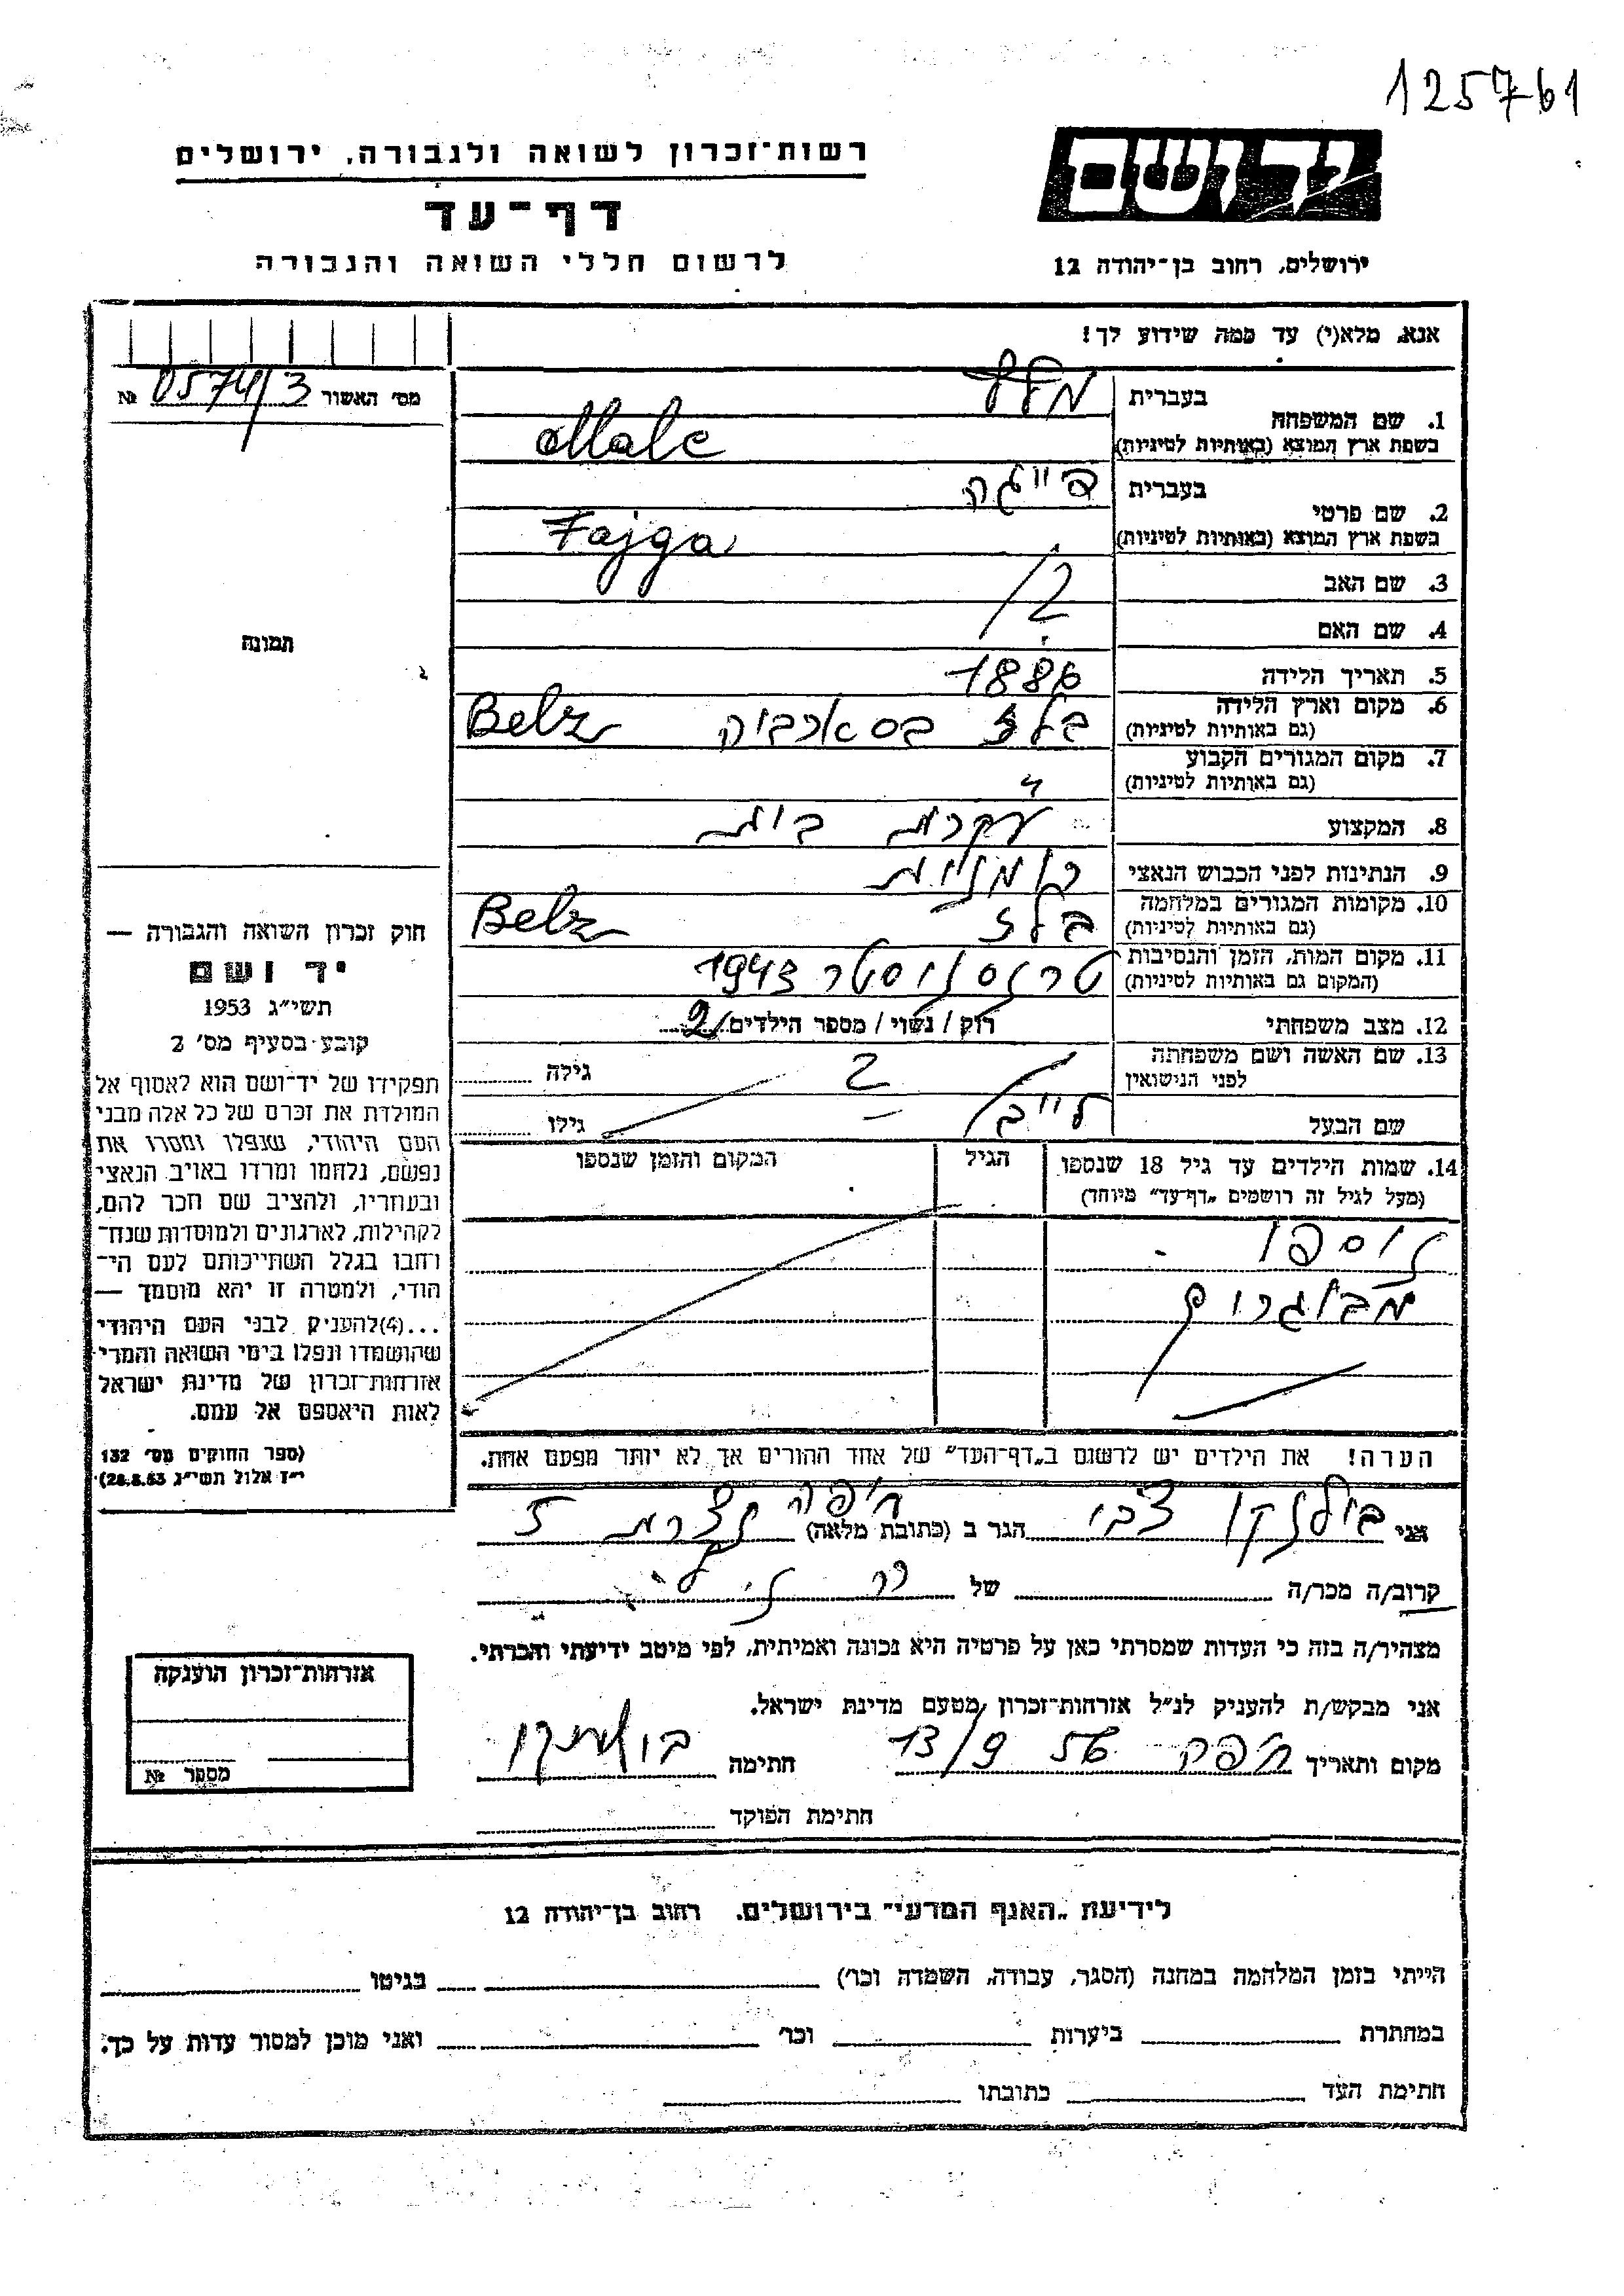 125761
רשות־זכרון לשואה ולגבורה, ירושלים
יד ושם
דף־עד
לרשום חללי השואה והגבורה
ירושלים, רחוב בן־יהודה 12
אנא, מלא(י) עד כמה שידוע לך!
מס' האשור 0574/3 №
1. שם המשפחה
בעברית
בשפת ארץ המוצא (באותיות לטיניות) Malc
2. שם פרטי
בעברית פייגה
בשפת ארץ המוצא (באותיות לטיניות) Fajga
3. שם האב
4. שם האם
5. תאריך הלידה 1886
6. מקום וארץ הלידה בלז בסארביה Belz
(גם באותיות לטיניות)
7. מקום המגורים הקבוע "
(גם באותיות לטיניות)
8. המקצוע עקרת בית
9. הנתינות לפני הכבוש הנאצי רומנית
10. מקומות המגורים במלחמה בלז Belz
(גם באותיות לטיניות)
11. מקום המות, הזמן והנסיבות טרנסניסטר 1943
(המקום גם באותיות לטיניות)
12. מצב משפחתי רוק / נשוי / מספר הילדים 2
13. שם האשה ושם משפחתה גילה
לפני הנישואין
שם הבעל לייב גילו
14. שמות הילדים עד גיל 18 שנספו הגיל המקום והזמן שנספו
(מעל לגיל זה רושמים „דף־עד" מיוחד)
נוספו
מבוגרים
הערה! את הילדים יש לרשום ב„דף־העד" של אחד ההורים אך לא יותר מפעם אחת.
תמונה
חוק זכרון השואה והגבורה —
יד ושם
תשי"ג 1953
קובע בסעיף מס' 2
תפקידו של יד־ושם הוא לאסוף אל
המולדת את זכרם של כל אלה מבני
העם היהודי, שנפלו ומסרו את
נפשם, נלחמו ומרדו באויב הנאצי
ובעוזריו, ולהציב שם וזכר להם,
לקהילות, לארגונים ולמוסדות שנח־
רבו בגלל השתייכותם לעם הי־
הודי, ולמטרה זו יהא מוסמך —
...(4) להעניק לבני העם היהודי
שהושמדו ונפלו בימי השואה והמרי
אזרחות־זכרון של מדינת ישראל
לאות היאספם אל עמם.
(ספר החוקים מס' 132
י"ז אלול תשי"ג 28.8.53)
אני צבי הגר ב (כתובת מלאה) חיפה
קרוב/ה מכר/ה של
מצהיר/ה בזה כי העדות שמסרתי כאן על פרטיה היא נכונה ואמיתית, לפי מיטב ידיעתי והכרתי.
אני מבקש/ת להעניק לנ"ל אזרחות־זכרון מטעם מדינת ישראל.
מקום ותאריך חיפה 13/9 56 חתימה
חתימת הפוקד
אזרחות־זכרון הוענקה
מספר №
לידיעת „האגף המדעי" בירושלים, רחוב בן־יהודה 12
הייתי בזמן המלחמה במחנה (הסגר, עבודה, השמדה וכו') בגיטו
במחתרת ביערות וכו' ואני מוכן למסור עדות על כך.
חתימת העד כתובתו